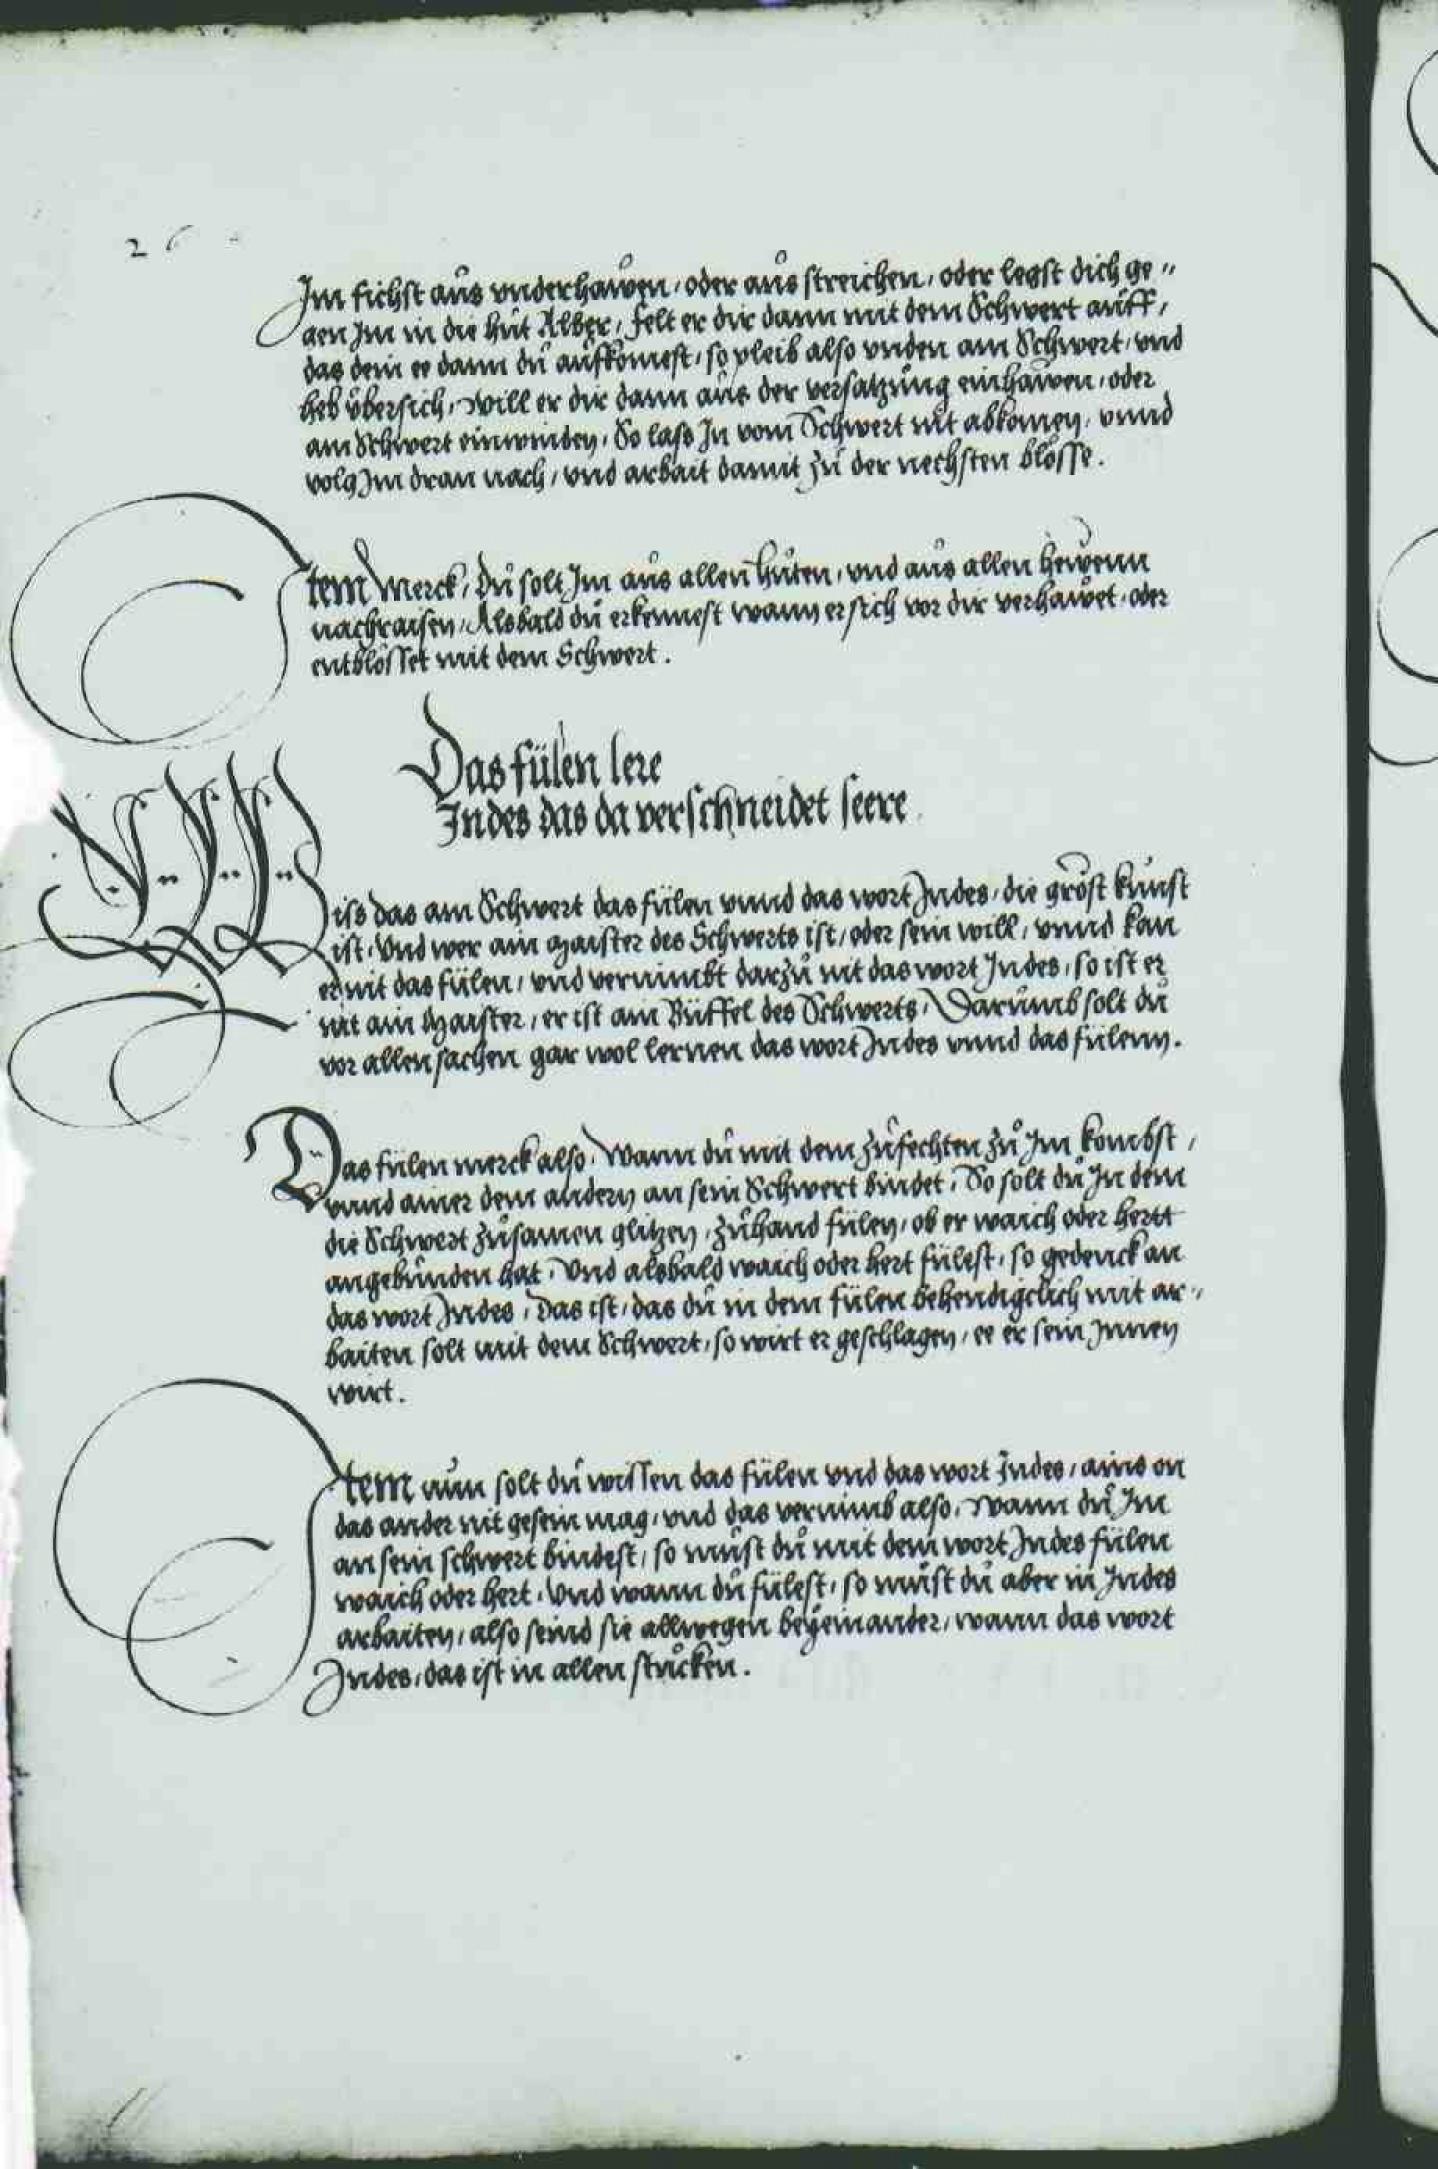 26
Im fichst aus vnderhawen, oder aus streichen, oder legst dich ge"
gen Im in die hůt Alber, felt er dir dann mit dem Schwert auff,
das dein ee dann dů aufkomest, so pleib also vnden am Schwert, vnd
heb übersich, will er dir dann aus der versatzůng einhawen, oder
am Schwert einwinden, So lass In vom Schwert nit abkomen, vnnd
volg Im dran nach, vnd arbait damit zů der nechsten blösse.
Item Merck, Dů solt Im aus allen hůten, vnd aus allen hewenn
nachraisen, Alsbald dů erkennest wann er sich vor dir verhawet, oder
entblösset mit dem Schwert.
Das fülen lere
Indes das da verschneidet seere
Wiss das am Schwert das fülen vnnd das wort Indes, die gröst kunst
ist, Vnd wer ain Maister des Schwerts ist, oder sein will, vnnd kan
er nit das fülen, vnd vernimbt darzů nit das wort Indes, so ist er
nit ain Maister, er ist ain Büffel des Schwerts, Darumb solt dů
vor allen sachen gar wol lernen das wort Indes vnnd das fülenn.
Das fülen merck also, Wann dů mit dem zůfechten zů Im kombst,
vnnd ainer dem andern an sein Schwert bindet, So solt dů In dem
die Schwert zůsamen glitzen, zůhand fülen, ob er waich oder hertt
angebunden hat, Vnd alsbald waich oder hert fülest, so gedenck an
das wort Indes, Das ist, das dů in dem fülen behendigclich mit ar"
baiten solt mit dem Schwert, so wirt er geschlagen, ee er sein Innen
wirt.
Item nůn solt dů wissen das fülen vnd das wort Indes, ains on
das ander nit gesein mag, vnd das vernimb also, Wann dů Im
an sein schwert bindest, so můst dů mit dem wort Indes fülen
waich oder hert, Vnd wann dů fülest, so můst dů aber in Indes
arbaiten, also seind sie allwegen beyeinander, wann das wort
Indes, das ist in allen stucken.